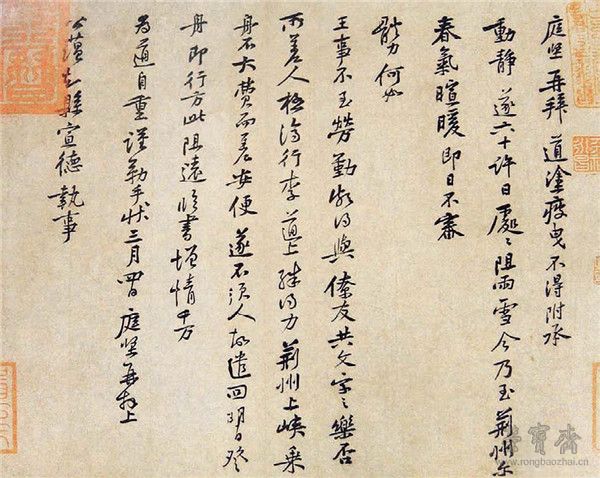 庭堅再拜 道塗疲曳不得附承
動靜 遂六十許日處〻阻雨雪今乃至荊州尔
春氣暄暖即日不審
體力何如
王事不至勞勤頗得與僚友共文字之樂否
所差人極濟行李道上殊得力荊州上峽乘
舟不大費而差安便遂不須人故遣回明日登
舟即行方此阻遠臨書增情千万
為道自重謹勒手狀三月四日庭堅再拜上
公蘊知縣宣德執事
榮寶齋
www.rongbaozhai.cn